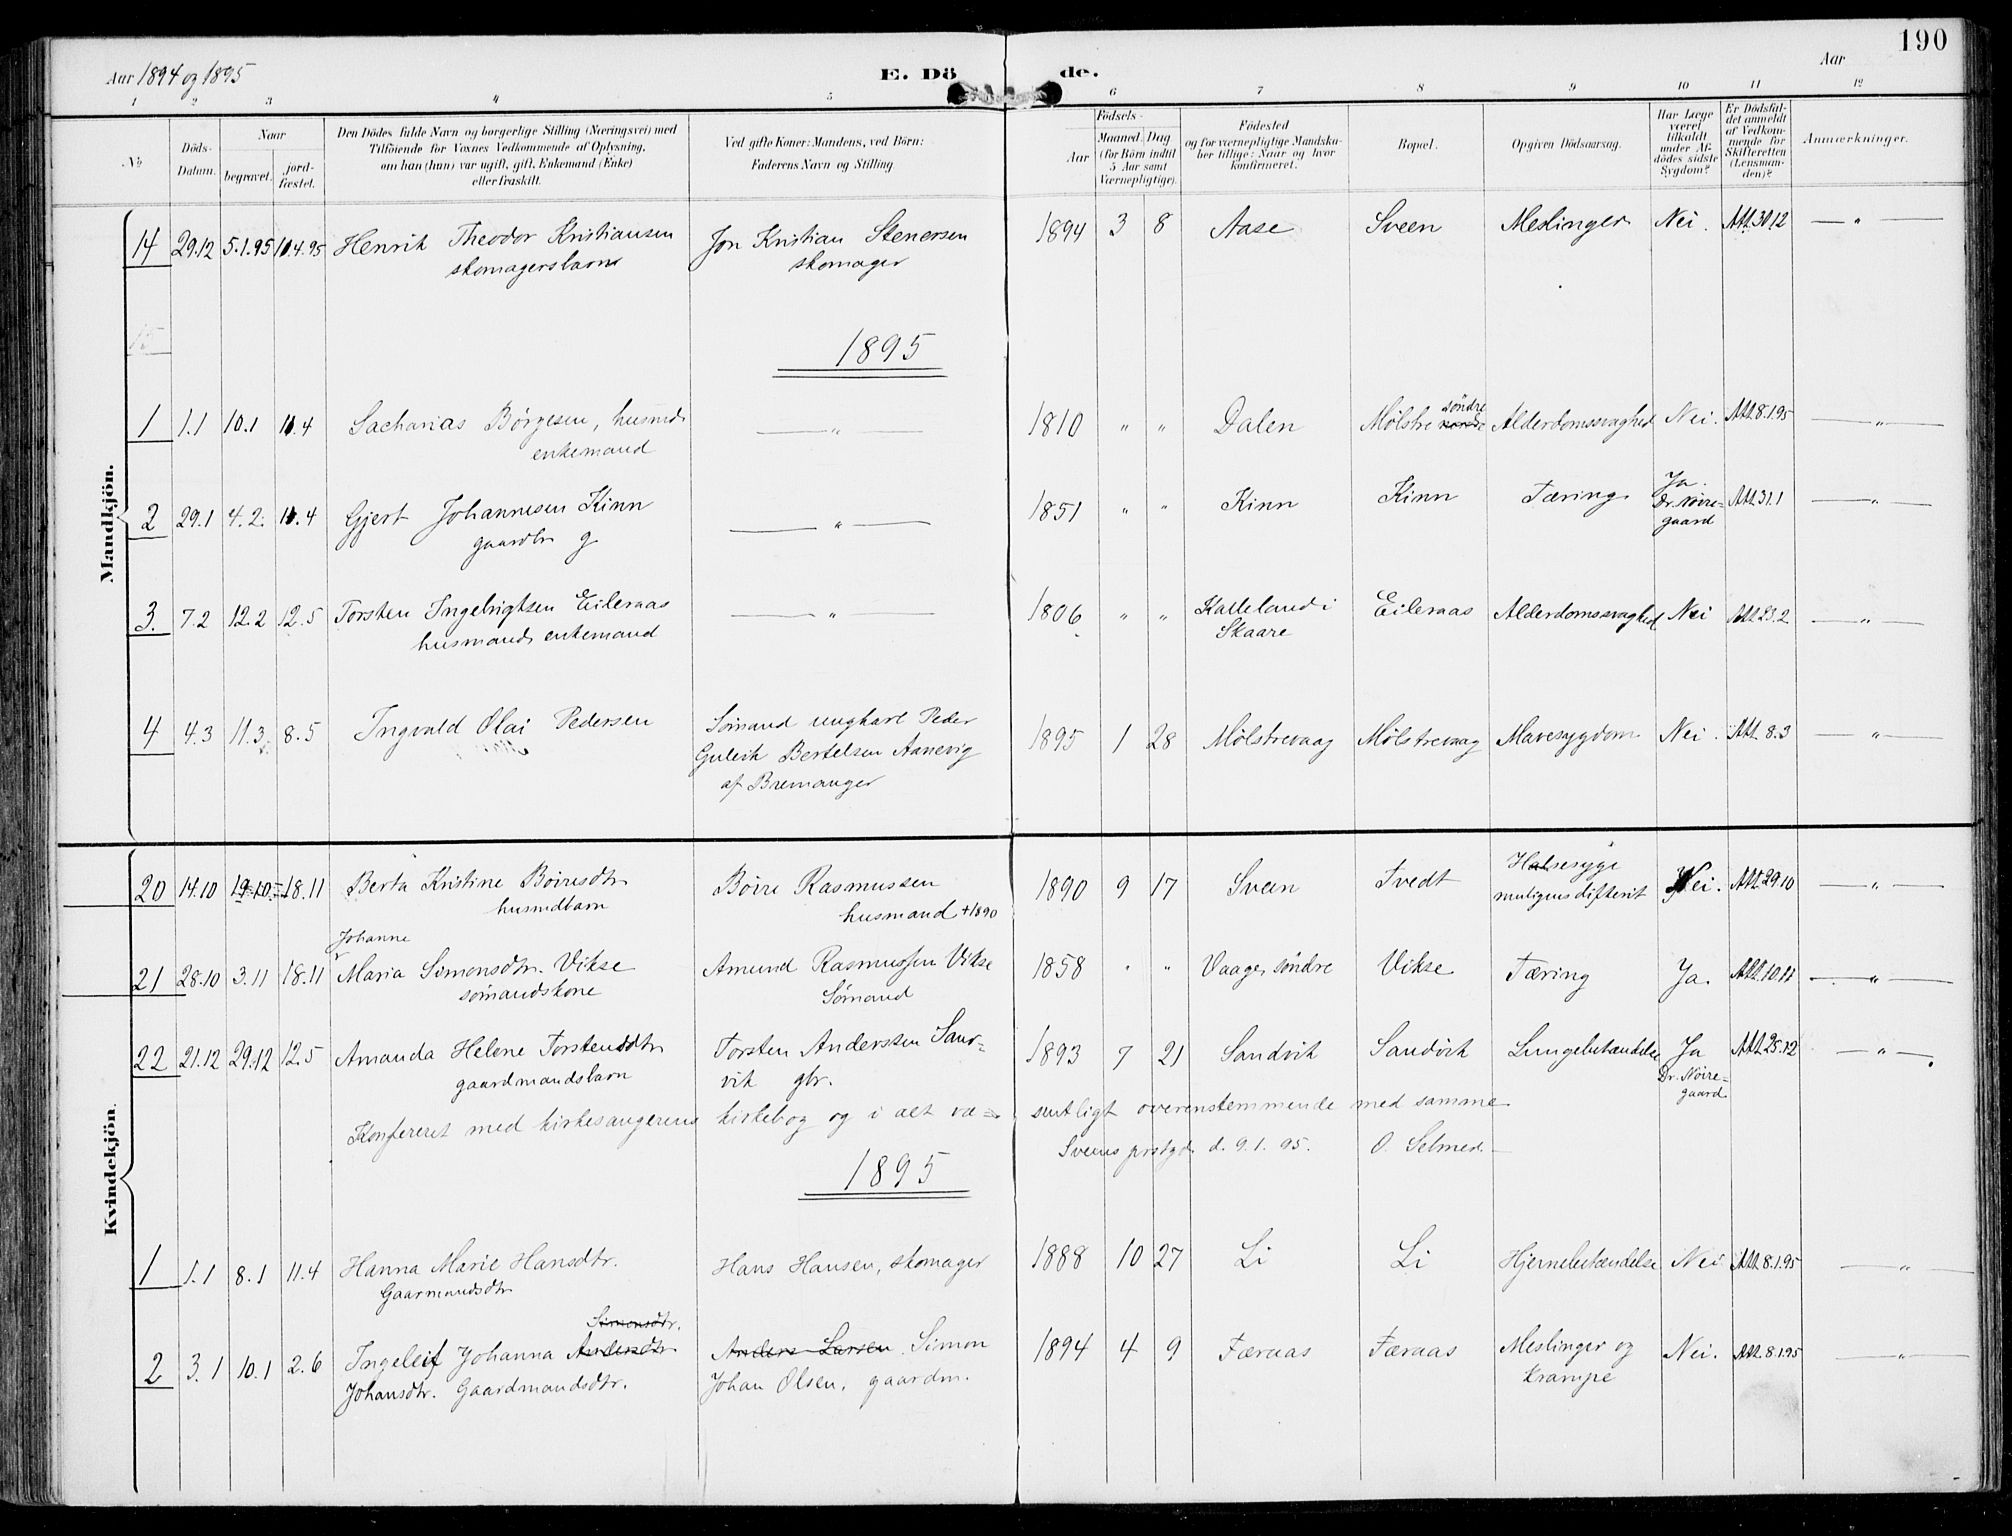 190
Aar 1894 og 1895 E. Dö de. Aar
1 2 3 4 5 6 7 8 9 10 11 12
No
Döds-Datum.
Naar
begravet.
jord-fæstet.
Den Dödes fulde Navn og borgerlige Stilling (Næringsvei) med
Tilföiende for Voxnes Vedkommende af Oplysning,
om han (hun) var ugift, gift, Enkemand (Enke)
eller fraskilt.
Ved gifte Koner: Mandens, ved Börn:
Faderens Navn og Stilling.
Födsels-
Aar
Maaned. Dag
(for Börn indtil
5 Aar samt
Værnepligtige).
Födested
og for værnepligtige Mandska-
ber tillige: Naar og hvor
konfirmeret.
Bopæl.
Opgiven Dödsaarsag.
Har Læge
været
tilkaldt
under Af-
dödes sidste
Sygdom?
Er Dödsfal-
det anmeldt
af Vedkom-
mende for
Skifteretten
(Lensman-
den)?
Anmærkninger.
Mandkjön.
14 29.12 5.1.95 10.4.95 Henrik Theodor Kristiansen Jon Kristian Stenersen 1894 3 8 Aase Sveen Meslinger Nei. Att. 30.12 — " —
skomagersbarn skomager
15
1895
1 1.1 10.1 11.4 Sacharias Börgesen, husmd. — " — 1810 " " Dalen Mølstre söndre Alderdomssvaghed Nei. Att. 8.1.95 — " —
enkemand
2 29.1 4.2. 11.4 Gjert Johannesen Kinn — " — 1851 " " Kinn Kinn Tæring Ja. Att. 31.1 — " —
gaardbr g Dr. Nøire-
gaard
3. 7.2 12.2 12.5 Torsten Ingebrigtsen Eileraas — " — 1806 " " Kallelandi Eileraas Alderdomssvaghed Nei Att. 23.2 — " —
husmands enkemand Skaare
4 4.3 11.3 8.5 Ingvald Olai Pedersen Sømand ungkarl Peder 1895 1 28 Mølstrevaag Mølstrevaag Mavesygdom Nei. Att. 8.3 — " —
Gulerik Bertelsen Aanevig
af Bremanger
Kvindekjön.
20 14.10 19.10 18.11 Berta Kristine Böiresdtr Böire Rasmussen 1890 9 17 Sveen Tvedt Halsesyge Nei. Att. 29.10 — " —
husmdbarn husmand +1890 muligens difterit
Johanne
21 28.10 3.11 18.11 Maria Simonsdtr. Vikse Amund Rasmussen Vikse 1858 " " Vaage, söndre Vikse Tæring Ja. Att. 10.11 — " —
sømandskone Sømand
22 21.12 29.12 12.5 Amanda Helene Torstensdtr Torsten Andersten Sand- 1893 7 21 Sandvik Sandvik Lungebetændelse Ja Att. 25.12 — " —
gaardmandsbarn vik gbr. Dr. Nøire-
gaard
Konfereret med kirkesangerens kirkebog og i alt væ- sentligt overensstemmende med samme
Sveens prstgd. d. 9.1.95. O. Selmer.
1895
1 1.1 8.1 11.4 Hanna Marie Hansdtr. Hans Hansen, skomager 1888 10 27 Li Li Hjernebetændelse Nei Att. 8.1.95 — " —
Gaarmandsdtr
Simonsdtr.
2 3.1 10.1 2.6 Ingeleif Johanna Andersdtr Anders Larsen. Simon 1894 4 9 Færaas Færaas Meslinger og Nei. Att. 8.1.95 — " —
Johansdtr. Gaardmandsdtr. Johan Olsen, gaardm. Krampe